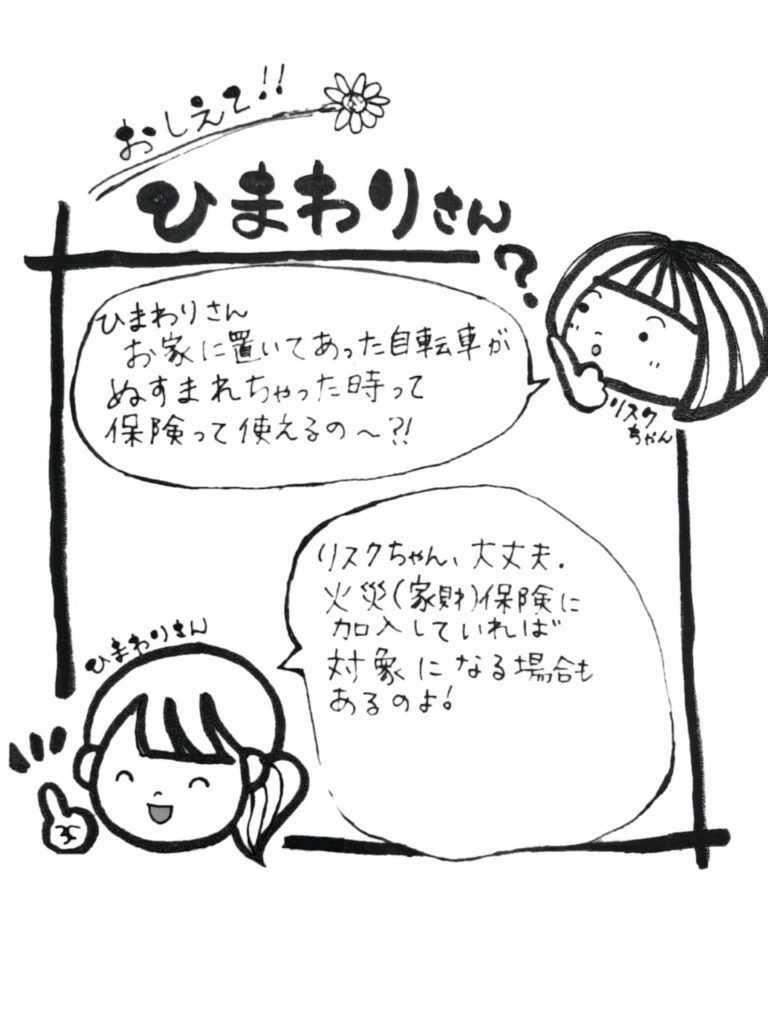 おしえて!!
ひまわりさん
?
ひまわりさん
お家に置いてあった自転車が
ぬすまれちゃった時って
保険って使えるの〜?!
リスク
ちゃん
リスクちゃん、大丈夫.
火災(家財)保険に
加入していれば
対象になる場合も
あるのよ!
ひまわりさん